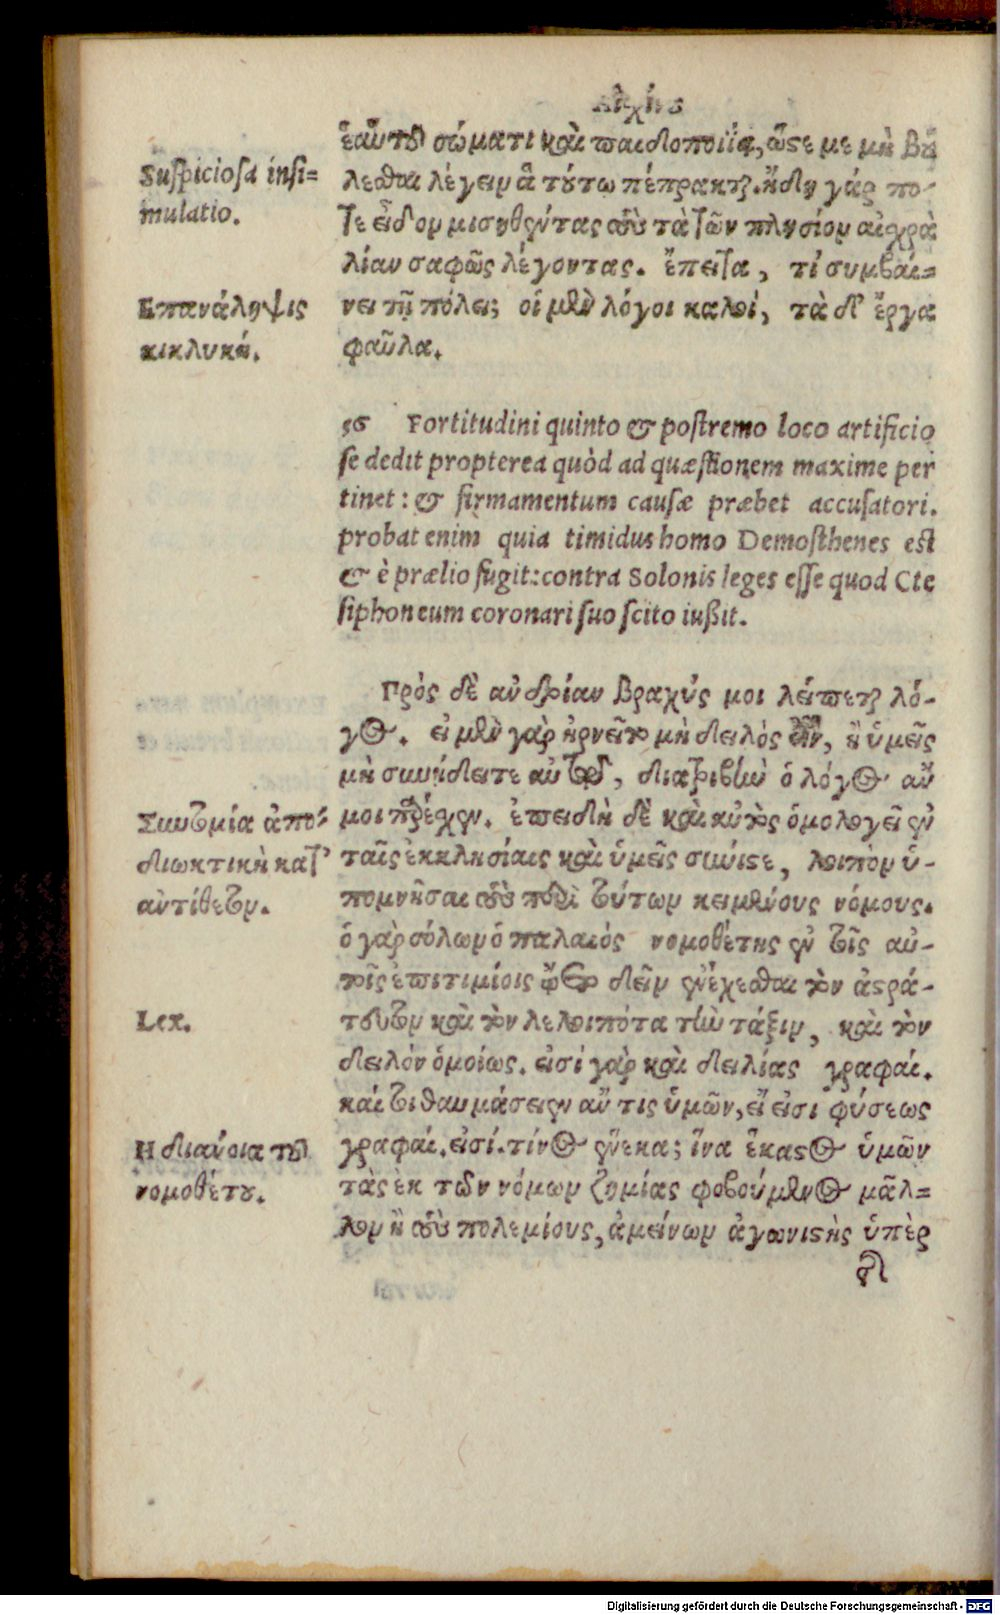 Αἰσχίνης
ἑαυτοῦ σώματι καὶ παιδοποιΐᾳ, ὥστε με μὴ βού
Suspiciosa insi=
λεσθαι λέγειν ἃ τούτῳ πέπρακται. ἤδη γάρ πο-
mulatio.
τε εἶδον μισηθέντας τοὺς τὰ τῶν πλησίον αἰσχρὰ
λίαν σαφῶς λέγοντας. ἔπειτα, τί συμβαί=
Επανάληψις
νει τῇ πόλει; οἱ μὲν λόγοι καλοὶ, τὰ δ' ἔργα
κικλυκή.
φαῦλα.
56 Fortitudini quinto & postremo loco artificio
se dedit propterea quòd ad quæstionem maxime per
tinet: & firmamentum causæ præbet accusatori.
probat enim quia timidus homo Demosthenes est
& è prælio fugit: contra Solonis leges esse quod Cte
siphon eum coronari suo scito iußit.
Πρὸς δὲ ἀνδρίαν βραχύς μοι λείπεται λό-
γος. εἰ μὲν γὰρ ἠρνεῖτο μὴ δειλὸς εἶναι, ἢ ὑμεῖς
μὴ συνῄδειτε αὐτῷ, διατριβὴν ὁ λόγος ἄν
Συντομία ἀπο-
μοι παρέσχεν. ἐπειδὴ δὲ καὶ αὐτὸς ὁμολογεῖ ἐν
διωκτικὴ κατ'
ταῖς ἐκκλησίαις καὶ ὑμεῖς σύνιστε, λοιπὸν ὑ-
αντίθετον.
πομνῆσαι τοὺς περὶ τούτων κειμένους νόμους.
ὁ γὰρ σόλων ὁ παλαιὸς νομοθέτης ἐν τοῖς αὐ-
τοῖς ἐπιτιμίοις ᾤετο δεῖν ἐνέχεσθαι τὸν ἀστρά-
Lex.
τευτον καὶ τὸν λελοιπότα τὴν τάξιν, καὶ τὸν
δειλὸν ὁμοίως. εἰσὶ γὰρ καὶ δειλίας γραφαί.
καίτοι θαυμάσειεν ἄν τις ὑμῶν, εἴ εἰσι φύσεως
Η διάνοια τοῦ
γραφαί. εἰσί. τίνος ἕνεκα; ἵνα ἕκαστος ὑμῶν
νομοθέτου.
τὰς ἐκ τῶν νόμων ζημίας φοβούμενος μᾶλ=
λον ἢ τοὺς πολεμίους, ἀμείνων ἀγωνιστὴς ὑπὲρ
τῆ
Digitalisierung gefördert durch die Deutsche Forschungsgemeinschaft - DFG